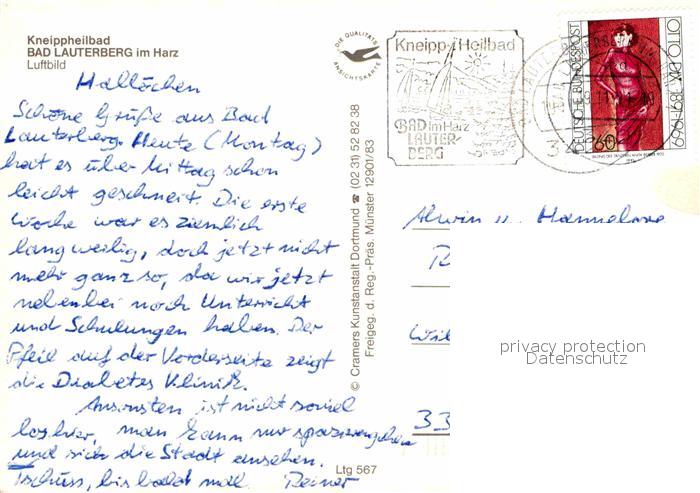 Kneippheilbad
BAD LAUTERBERG im Harz
Luftbild
Hallöchen
Schöne Grüße aus Bad
Lauterberg. Heute (Montag)
hat es über Mittag schon
leicht geschneit. Die erste
Woche war es ziemlich
langweilig, doch jetzt nicht
mehr ganz so, da wir jetzt
nebenbei noch Unterricht
und Schulungen haben. Der
Pfeil auf der Vorderseite zeigt
die Diabetes Klinik.
Ansonsten ist nicht soviel
los hier, man kann nur spazierengehen
und sich die Stadt ansehen.
Tschüss, bis bald mal. Reiner
DIE QUALITÄTS
ANSICHTSKARTE
© Cramers Kunstanstalt Dortmund ☎ (02 31) 52 82 38
Freigeg. d. Reg.-Präs. Münster 12901/83
Ltg 567
Kneipp-Heilbad
BAD im Harz
LAUTER-
BERG
DEUTSCHE BUNDESPOST
60
OTTO DIX 1891-1969
Alwin u. Hannelore
33
privacy protection
Datenschutz